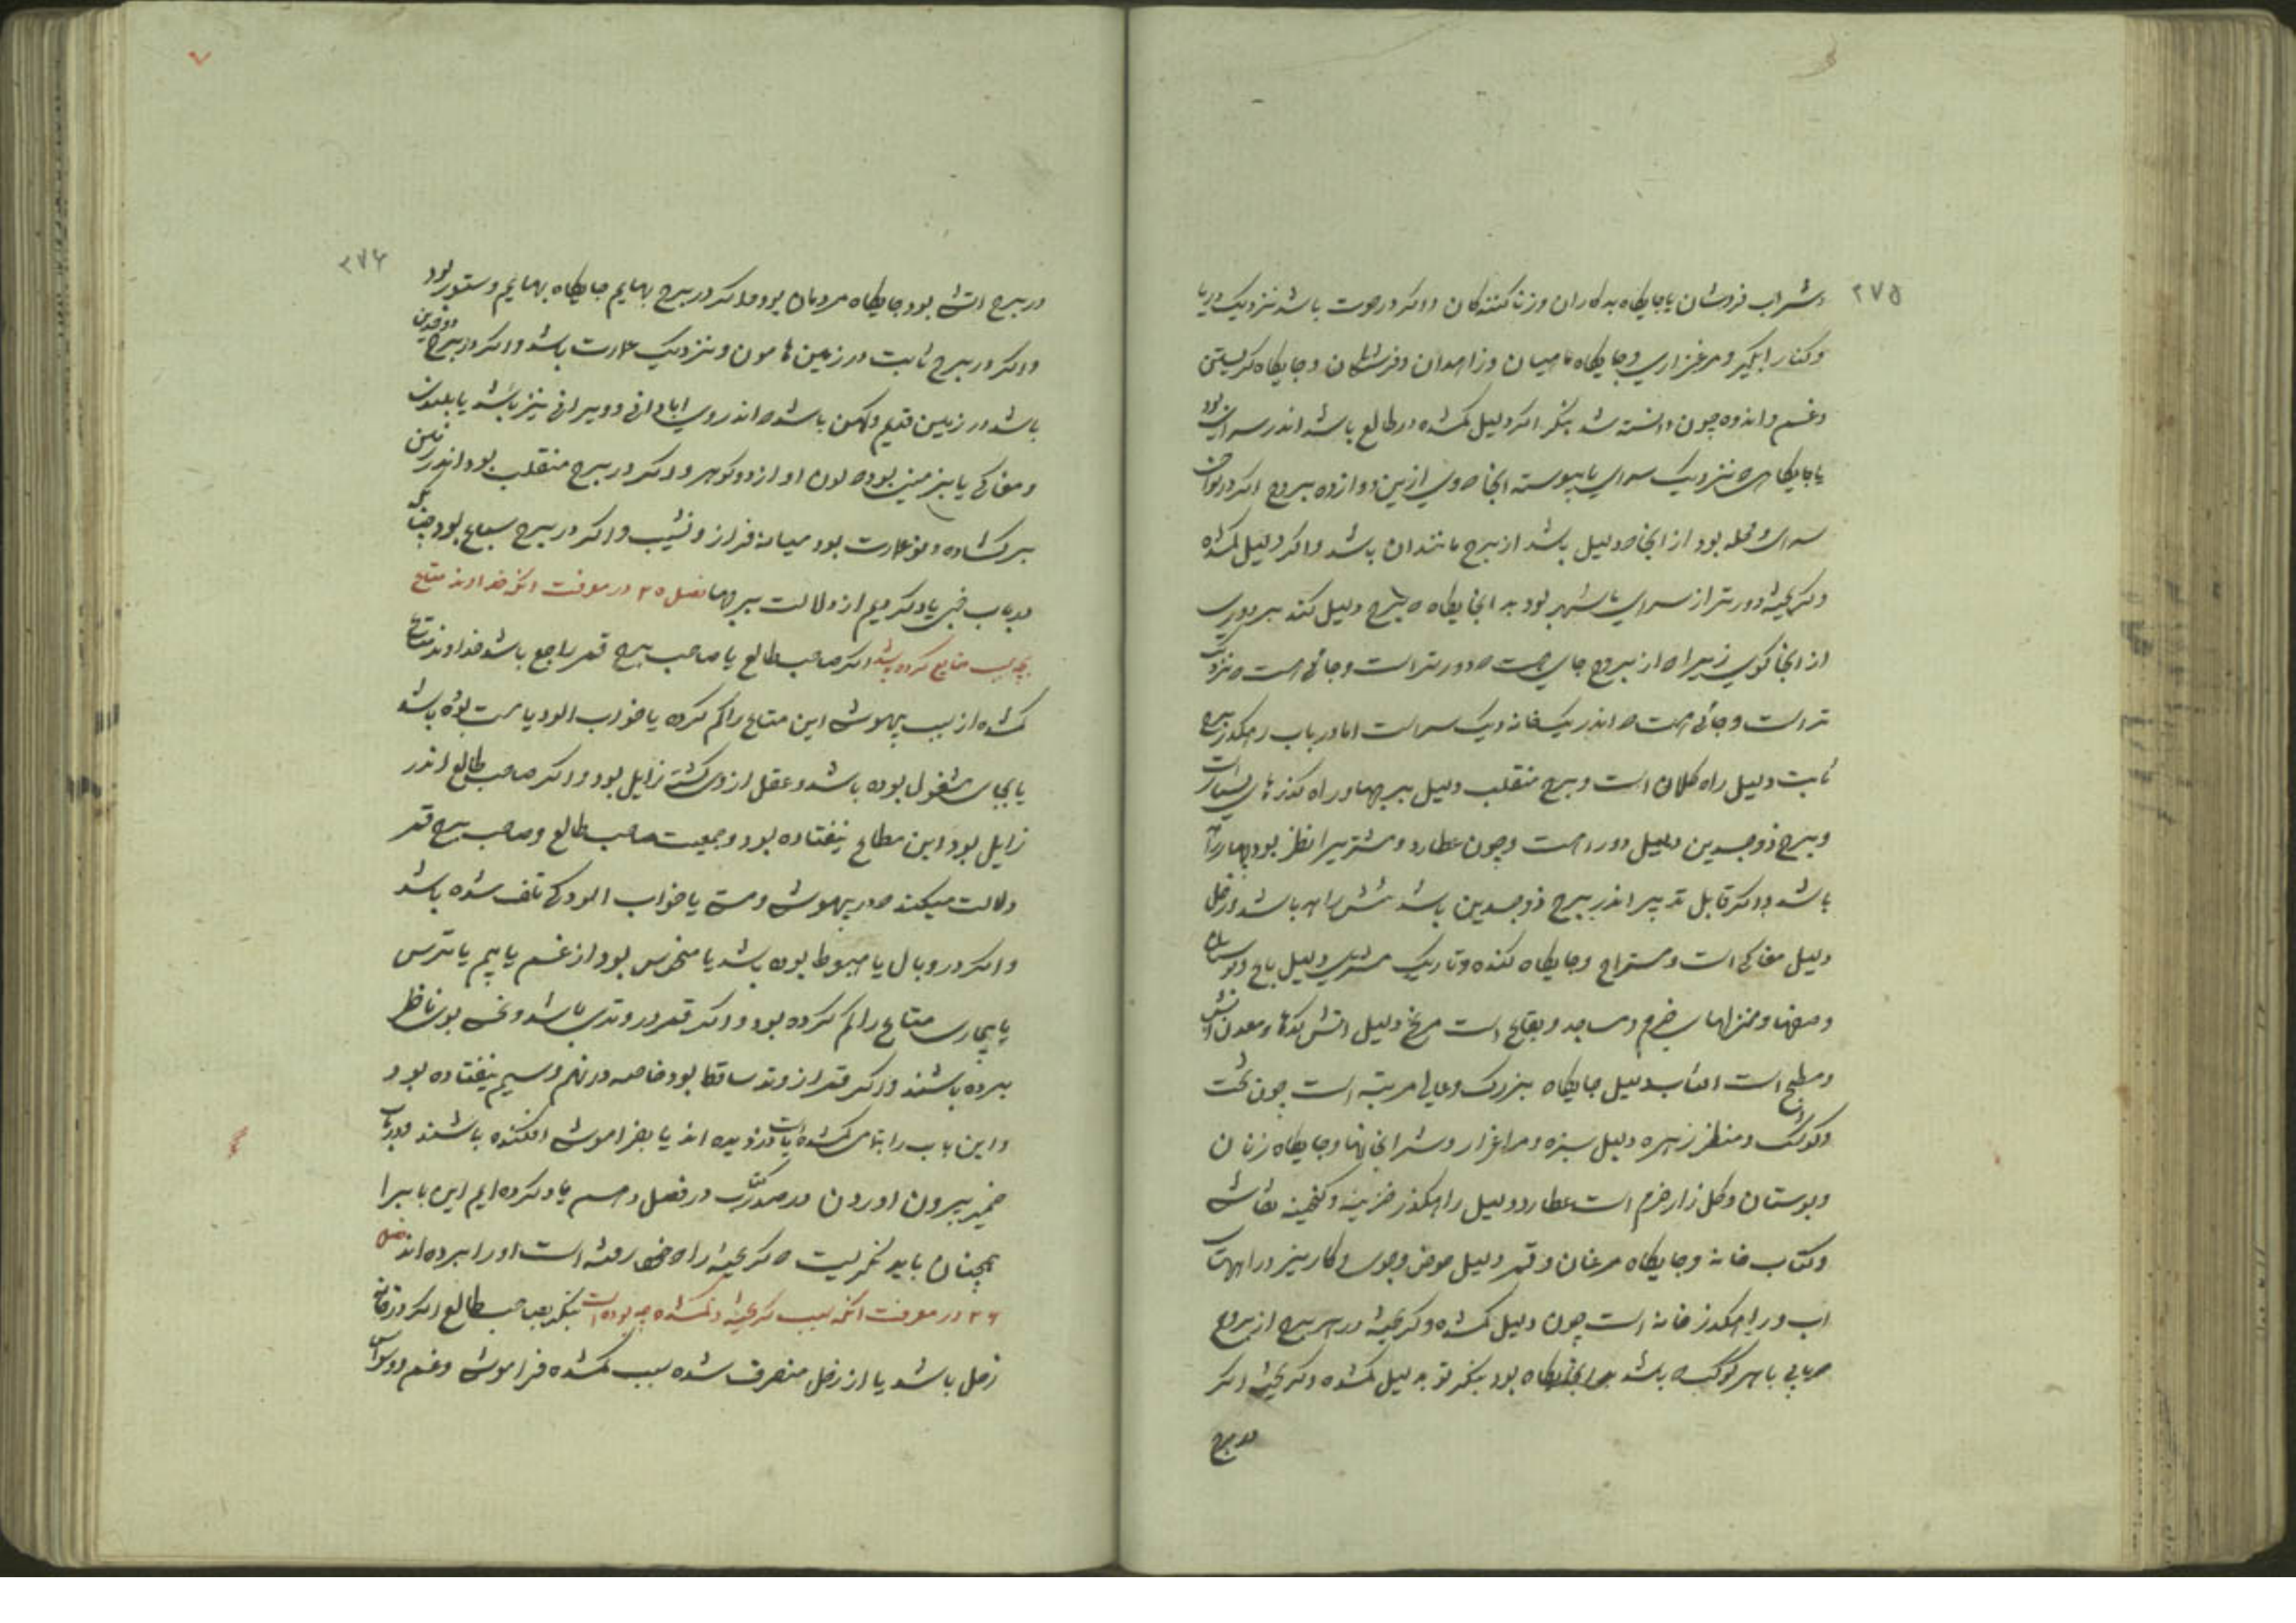 ۲۷۵
و شراب فروشان یا جایگاه بدکاران و زناکنندکان و اکر در حوت باشد نزدیک دریا
و کنار ابگیر و مرغزاری و جایگاه ماهیان و زاهدان و فرشتکان و جایکاه کریستن
و غم و اندوه چون دانسته شد بنکر اکر دلیل کمشده در طالع باشد اندر سرای بود
یا جایکاهی که نزدیک سرای یا پیوسته انجا که وی ازین دوازده بروج اکر در نواحی
سرای و محله بود از انجا که دلیل باشد از برج مانندان باشد و اکر دلیل کمشده
و کریخته دورتر از سرای یا شهر بود به انجایکاه که برج دلیل کند بر دوری
از انجا کوی زیرا که از بروج جای هست که دورتر است و جائی هست که نزدیک
تر است و جائی هست که اندر یکخانه و یک سر است اما در باب رهکذر برج
ثابت دلیل راه کلان است و برج منقلب دلیل بر چهار راه کذرهای بسیار است
و برج ذوجسدین دلیل دو راهست و چون عطارد و مشتریرا نظر بود چهار راه
باشد و اکر قابل تدبیر اندر برج ذوجسدین باشد شش راهه باشد و زحل
دلیل مغاکی است و مستراح و جایکاه کنده و تاریک مشتری دلیل باغ و بوستان
و صفها و منزلهای خرم و مساجد و بقاع است مریخ دلیل اتش کدها و معدن اتش
و مطبخ است افتاب دلیل جایکاه بزرک و عالی مرتبه است چون تخت
و کوشک و منظر زهره دلیل سبزه و مرغزار و شرابخانها و جایکاه زنان
و بوستان و کل زار خرم است عطارد دلیل راهکذر خزینه و کنجینه نقاشی
و کتاب خانه و جایکاه مرغان و قمر دلیل حوض و جوی و کاریز و راههای
اب و راهکذر خانه است چون دلیل کمشده و کریخته در هر برج از بروج
که یابی با هر کوکب که باشد بدانجایکاه بود بنکر تو بدلیل کمشده و کریخته اکر
در برج
۲۷۶
در برج اتشی بود جایکاه مردمان بود و اکر در برج بهایم جایکاه بهایم و ستور بود
و اکر در برج ثابت در زمین هامون و نزدیک عمارت باشد و اکر در برج ذوجسدین
باشد در زمین قدیم و کهن باشد که اندر وی ابادانی و ویرانی نیز باشد یا بلندی
و مغاکی یا بر زمینی بود که لون او از دو کوهر و اکر در برج منقلب بود اندر زمین
بر کشاده و نو عمارت بود میانه فراز و نشیب و اکر در برج سباع بود چنانکه
در باب خبی یاد کردیم از دلالت برجها فصل ۲۵ در معرفت انکه خداوند متاع
بچه سبب ضایع کرده باشد اکر صاحب طالع یا صاحب برج قمر راجع باشد خداوند متاع
کمشده از سبب بیهوشی این متاع را کم کرده یا خواب الود یا مست بوده باشد
یا بجای مشغول بوده باشد و عقل از وی کشته زایل بود و اکر صاحب طالع اندر
زایل بود این مطاع بیفتاده بود و جمعیت صاحب طالع و صاحب برج قمر
دلالت میکند که در بیهوشی و مستی یا خواب الودکی تلف شده باشد
و اکر در وبال یا هبوط بوده باشد یا منحوس بود از غم یا بیم یا ترس
یا بیماری متاع را کم کرده بود و اکر قمر در وتدی باشد و نحس بوی ناظر
برده باشند و اکر قمر از وتد ساقط بود خاصه در نهم و سیم بیفتاده بود
و این باب را بتامی کمشده یافت دزدیده اند یا بفراموشی افکنده باشند در باب
ضمیر بیرون اوردن در صدر کتاب در فصل دهم یاد کرده ایم این بابرا
همچنان باید نکریست که کریخته را که خود رفته است او را برده اند فصل
۲۶ در معرفت انکه سبب کریخته و کمشده چه بوده است بنکر بصاحب طالع اکر در خانه
زحل باشد یا از زحل منصرف شده سبب کمشده فراموشی و غم و وسواس